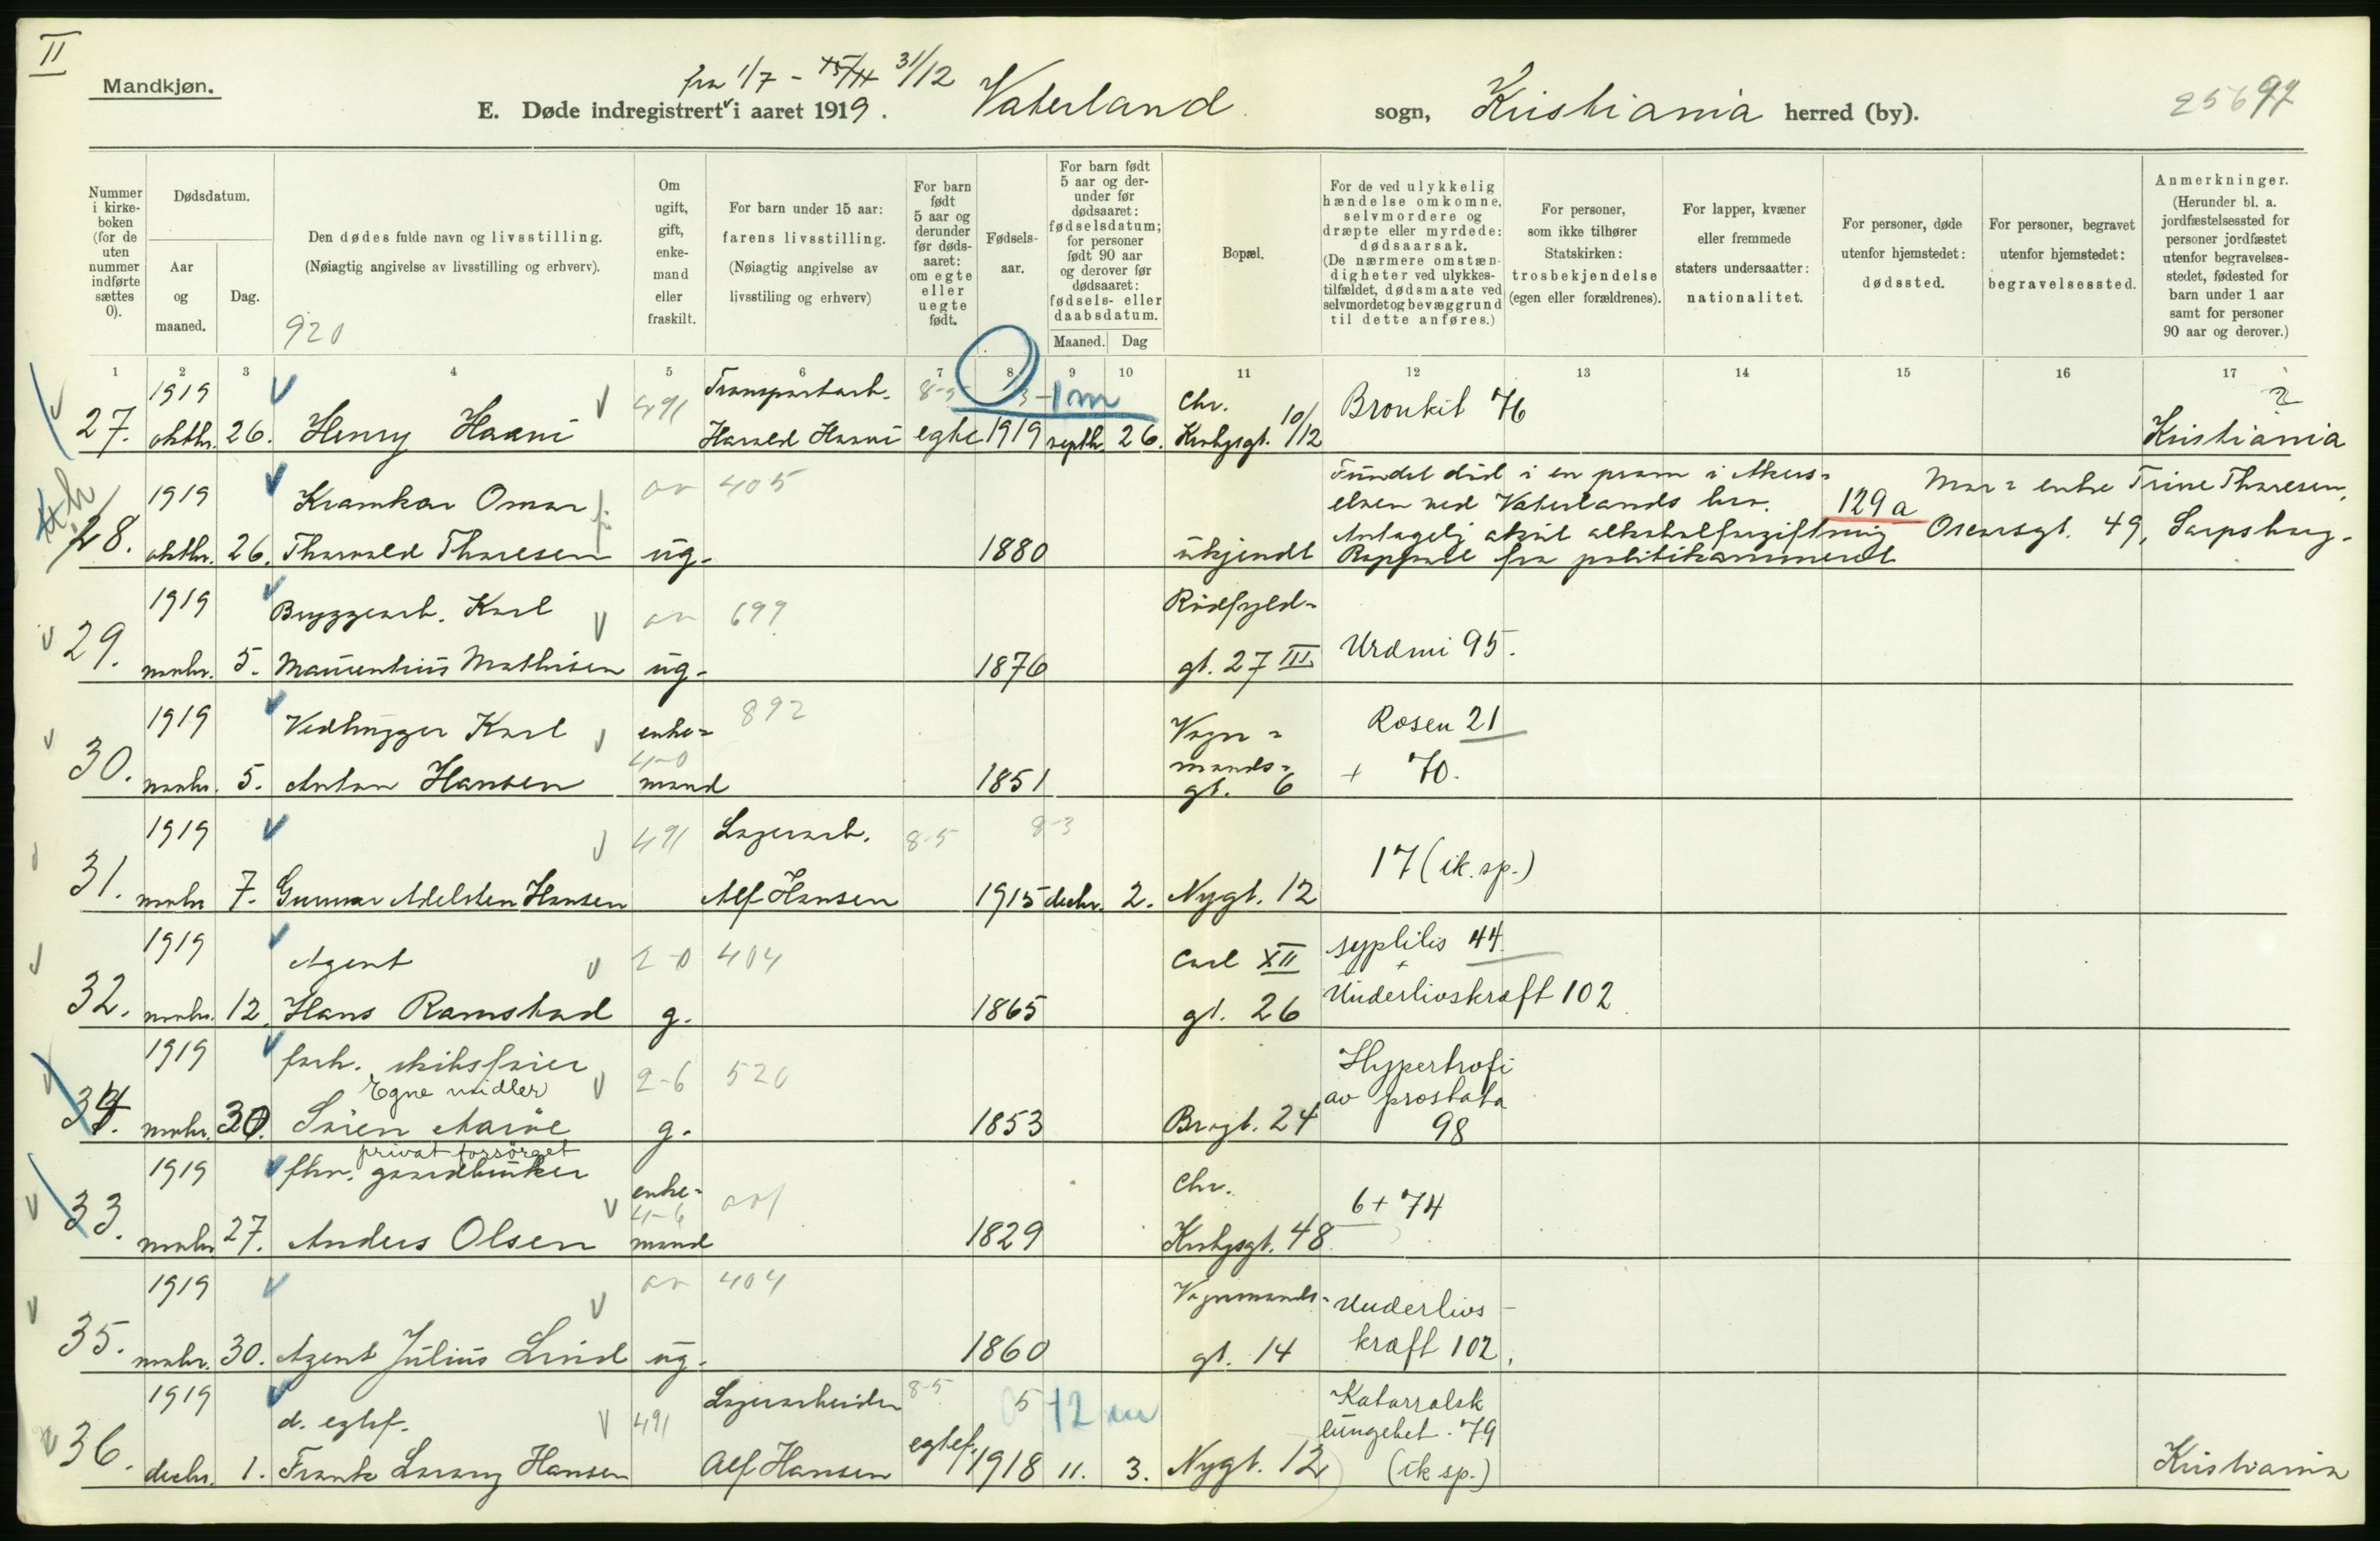 II
Mandkjøn.
fra 1/7 - 31/12
E. Døde indregistrert i aaret 1919. Vaterland sogn, Kristiania herred (by).
25697
Nummer i kirkeboken (for de uten nummer indførte sættes 0).
Dødsdatum.
Aar og maaned.
Dag.
Den dødes fulde navn og livsstilling.
(Nøiagtig angivelse av livsstilling og erhverv).
920
Om ugift, gift, enkemand eller fraskilt.
For barn under 15 aar:
farens livsstilling.
(Nøiagtig angivelse av livsstiling og erhverv)
For barn født 5 aar og derunder før dødsaaret: om egte eller uegte født.
Fødselsaar.
For barn født 5 aar og derunder før dødsaaret: fødselsdatum; for personer født 90 aar og derover før dødsaaret: fødsels- eller daabsdatum.
Maaned. Dag
Bopæl.
For de ved ulykkelig hændelse omkomne, selvmordere og dræpte eller myrdede: dødsaarsak.
(De nærmere omstændigheter ved ulykkestilfældet, dødsmaate ved selvmordet og bevæggrund til dette anføres.)
For personer, som ikke tilhører Statskirken: trosbekjendelse (egen eller forældrenes).
For lapper, kvæner eller fremmede staters undersaatter: nationalitet.
For personer, døde utenfor hjemstedet: dødssted.
For personer, begravet utenfor hjemstedet: begravelsessted.
Anmerkninger.
(Herunder bl. a. jordfæstelsessted for personer jordfæstet utenfor begravelsesstedet, fødested for barn under 1 aar samt for personer 90 aar og derover.)
1 2 3 4 5 6 7 8 9 10 11 12 13 14 15 16 17
1919 491 Transportarb. 1 m Chr. Bronkit 76
27. oktbr. 26. Henry Haavi Harald Haavi egte 1919 septb. 26. Krohgsgt. 10/12 Kristiania
Fundet død i en pram i Akers-
1919 Kramkar Omar 405 elven ved Vaterlands bro. 129 a Mor = enke Trine Thoresen,
Antagelig akut alkoholforgiftning Oscarsgt. 49, Sarpsborg.
28. oktbr. 26. Thorvald Thoresen ug. 1880 ukjendt Rapport fra politikammeret
1919 Bryggearb. Karl 699 Rødfyld-
29. novbr. 5. Maurentius Mathisen ug. 1876 gt. 27 III Urämi 95.
1919 Vedhugger Karl enke- 892 Vogn- Rosen 21
4-0 mands- + 70.
30. novbr. 5. Anton Hansen mand 1851 gt. 6
1919 491 Lagerarb. 8-5 8-3 17 (ik. sp.)
31. novbr 7. Gunnar Adelsten Hansen Alf Hansen 1915 decbr. 2. Nygt. 12
1919 Agent 2-0 404 Carl XII syphilis 44
+
32. novbr. 12. Hans Ramstad g. 1865 gt. 26 Underlivskræft 102
1919 forh. skibsfører 2-6 520 Hypertrofi
Egne midler av prostata
34. novbr. 30. Sören Aaröe g. 1853 Brogt. 24 98
privat forsörget
1919 fhv. gaardbruker enke- Chr. 6 + 74
4-6
33. novbr 27. Anders Olsen mand 1829 Krohgsgt. 48
1919 404 Vognmands- Underlivs-
35. novbr. 30. Agent Julius Lind ug. 1860 gt. 14 kræft 102.
1919 d. egtef. 491 Lagerarbeider 8-5 5 12 m Katarralsk
lungebet. 79
36. decbr. 1. Frank Lorang Hansen Alf Hansen egtef. 1918 11. 3. Nygt. 12 (ik sp.) Kristiania